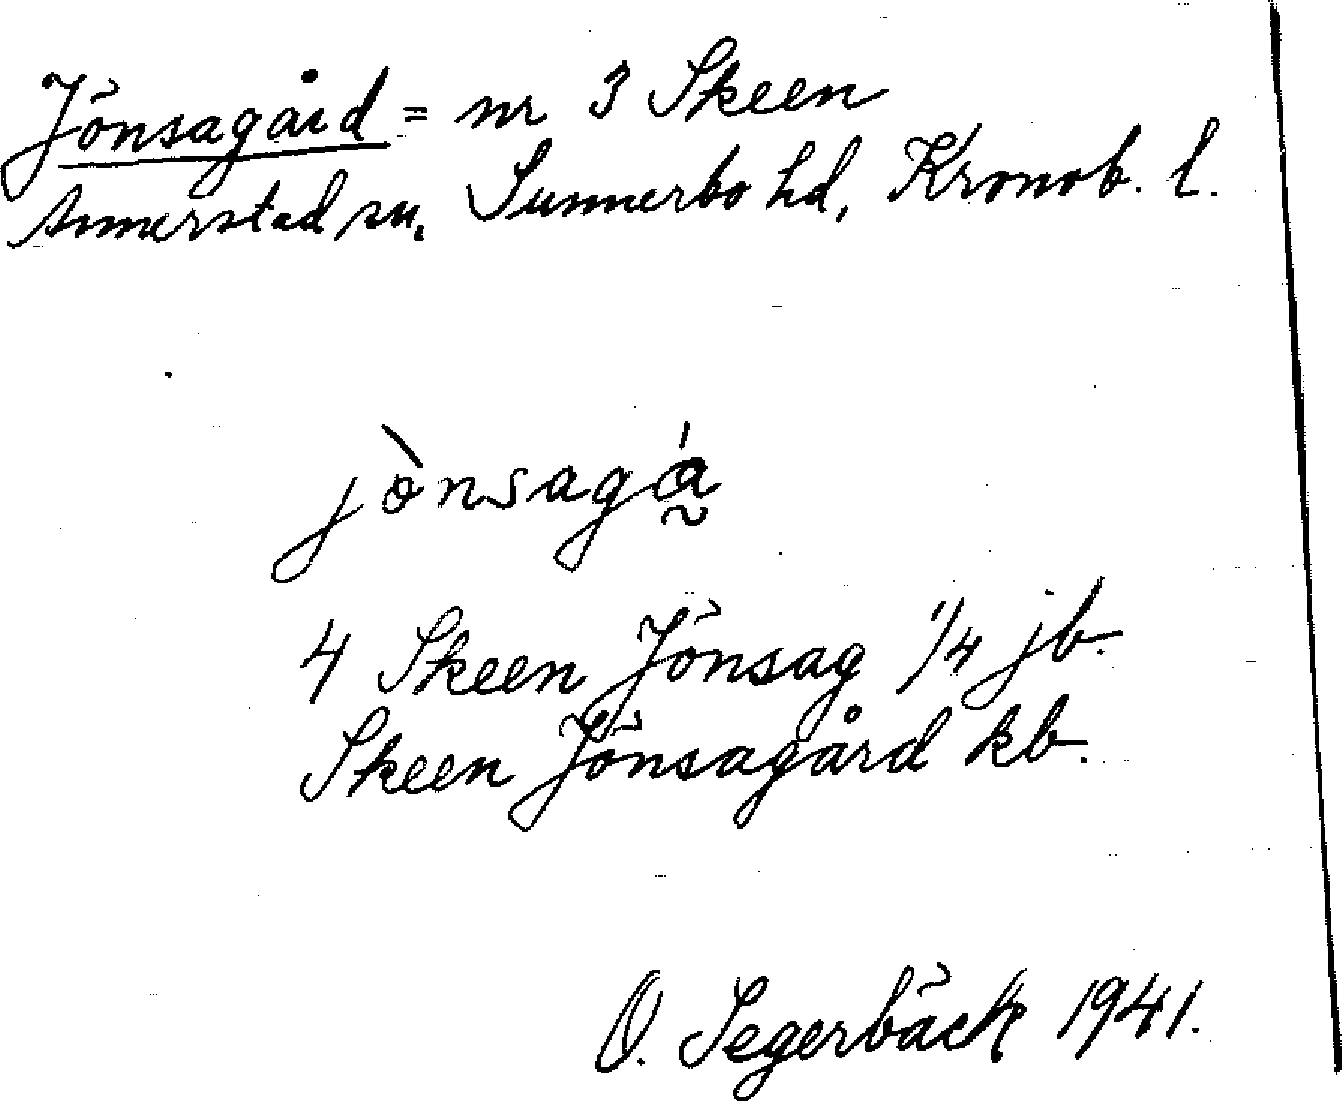 Jönsagård = nr 3 Skeen
Annerstad sn. Sunnerbo hd, Kronob. l.
jònsagá̰
4 Skeen Jönsag 1/4 jb.
Skeen Jönsagård kb.
O. Segerbäck 1941.